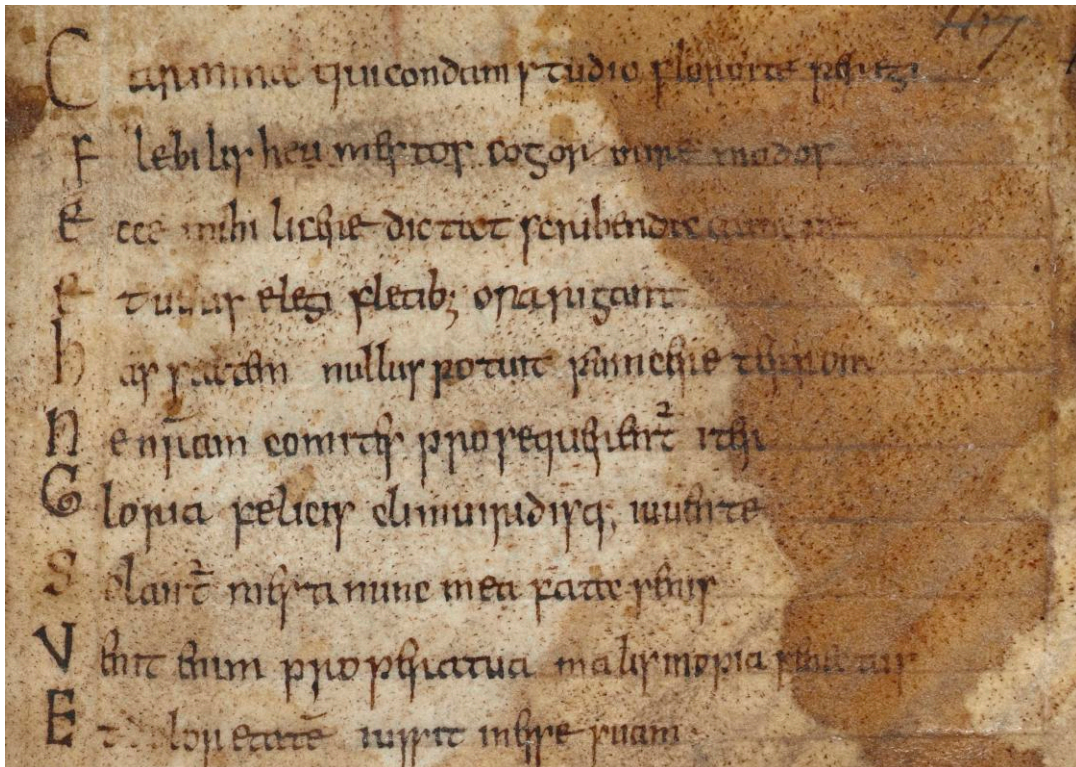 Carmina qui condam studio florente peregi
Flebilis heu mestos cogor inire modos
Ecce mihi dictat scribenda
Et elegi fletib; ora rigant
has nullus potuit peruincere terror
Ne nr̄am comites prosequerent̄ iter
Gloria felicis olim uiridisq; iuuente
Solant̄ mesta nunc mea fata senis
Venit enim malis inopia senectus
Et dolor etatē iussit inesse suam